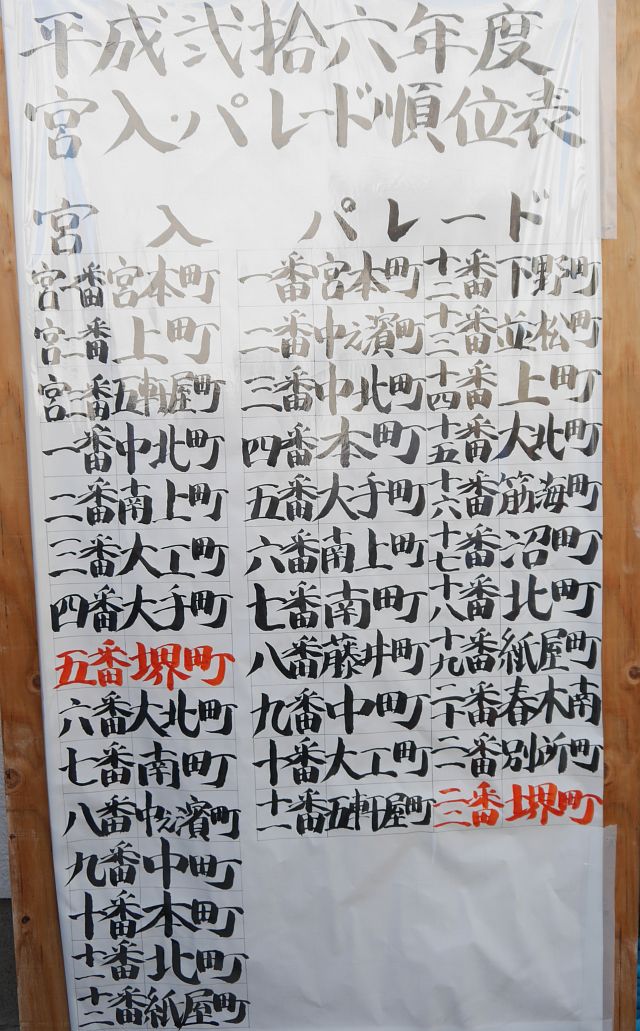 平成弐拾六年度
宮入・パレード順位表
宮入
宮一番 宮本町
宮二番 上町
宮三番 五軒屋町
一番 中北町
二番 南上町
三番 大工町
四番 大手町
五番 堺町
六番 大北町
七番 南町
八番 中之濱町
九番 中町
十番 本町
十一番 北町
十二番 紙屋町
パレード
一番 宮本町
二番 中之濱町
三番 中北町
四番 本町
五番 大手町
六番 南上町
七番 南町
八番 藤井町
九番 中町
十番 大工町
十一番 五軒屋町
十二番 下野町
十三番 並松町
十四番 上町
十五番 大北町
十六番 筋海町
十七番 沼町
十八番 北町
十九番 紙屋町
二十番 春木南
二一番 別所町
二二番 堺町